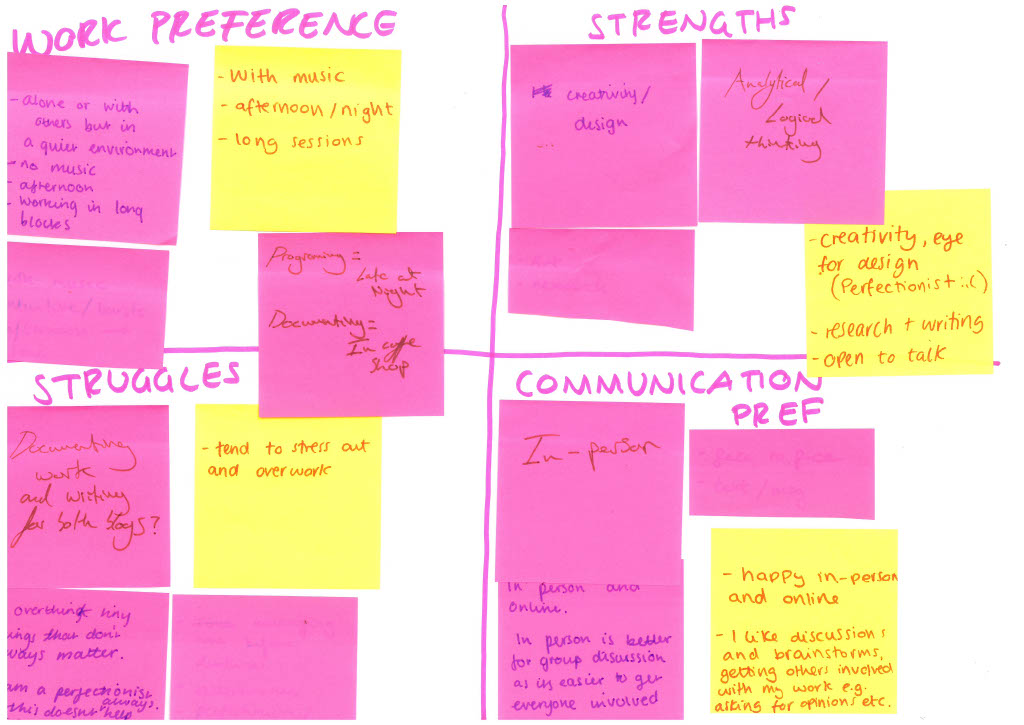 WORK PREFERENCE
- alone or with
others but in
a quiet environment
- no music
- afternoon
- working in long
blocks
- With music
- afternoon/night
- long sessions
music
/ bursts
Programing =
Late at
Night
Documenting =
In coffe
Shop
STRENGTHS
creativity/
design
...
Analytical /
Logical
thinking
- creativity, eye
for design
(Perfectionist :.()
- research + writing
- open to talk
STRUGGLES
Documenting
work
and writing
for both blogs?
- tend to stress out
and overwork
overthink tiny
ings that don't
ways matter.
am a perfectionist
always.
this doesn't help
COMMUNICATION
PREF
In-person
- face to face
- text / msg
In person and
online.
In person is better
for group discussion
as its easier to get
everyone involved
- happy in-person
and online
- I like discussions
and brainstorms,
getting others involved
with my work e.g.
asking for opinions etc.